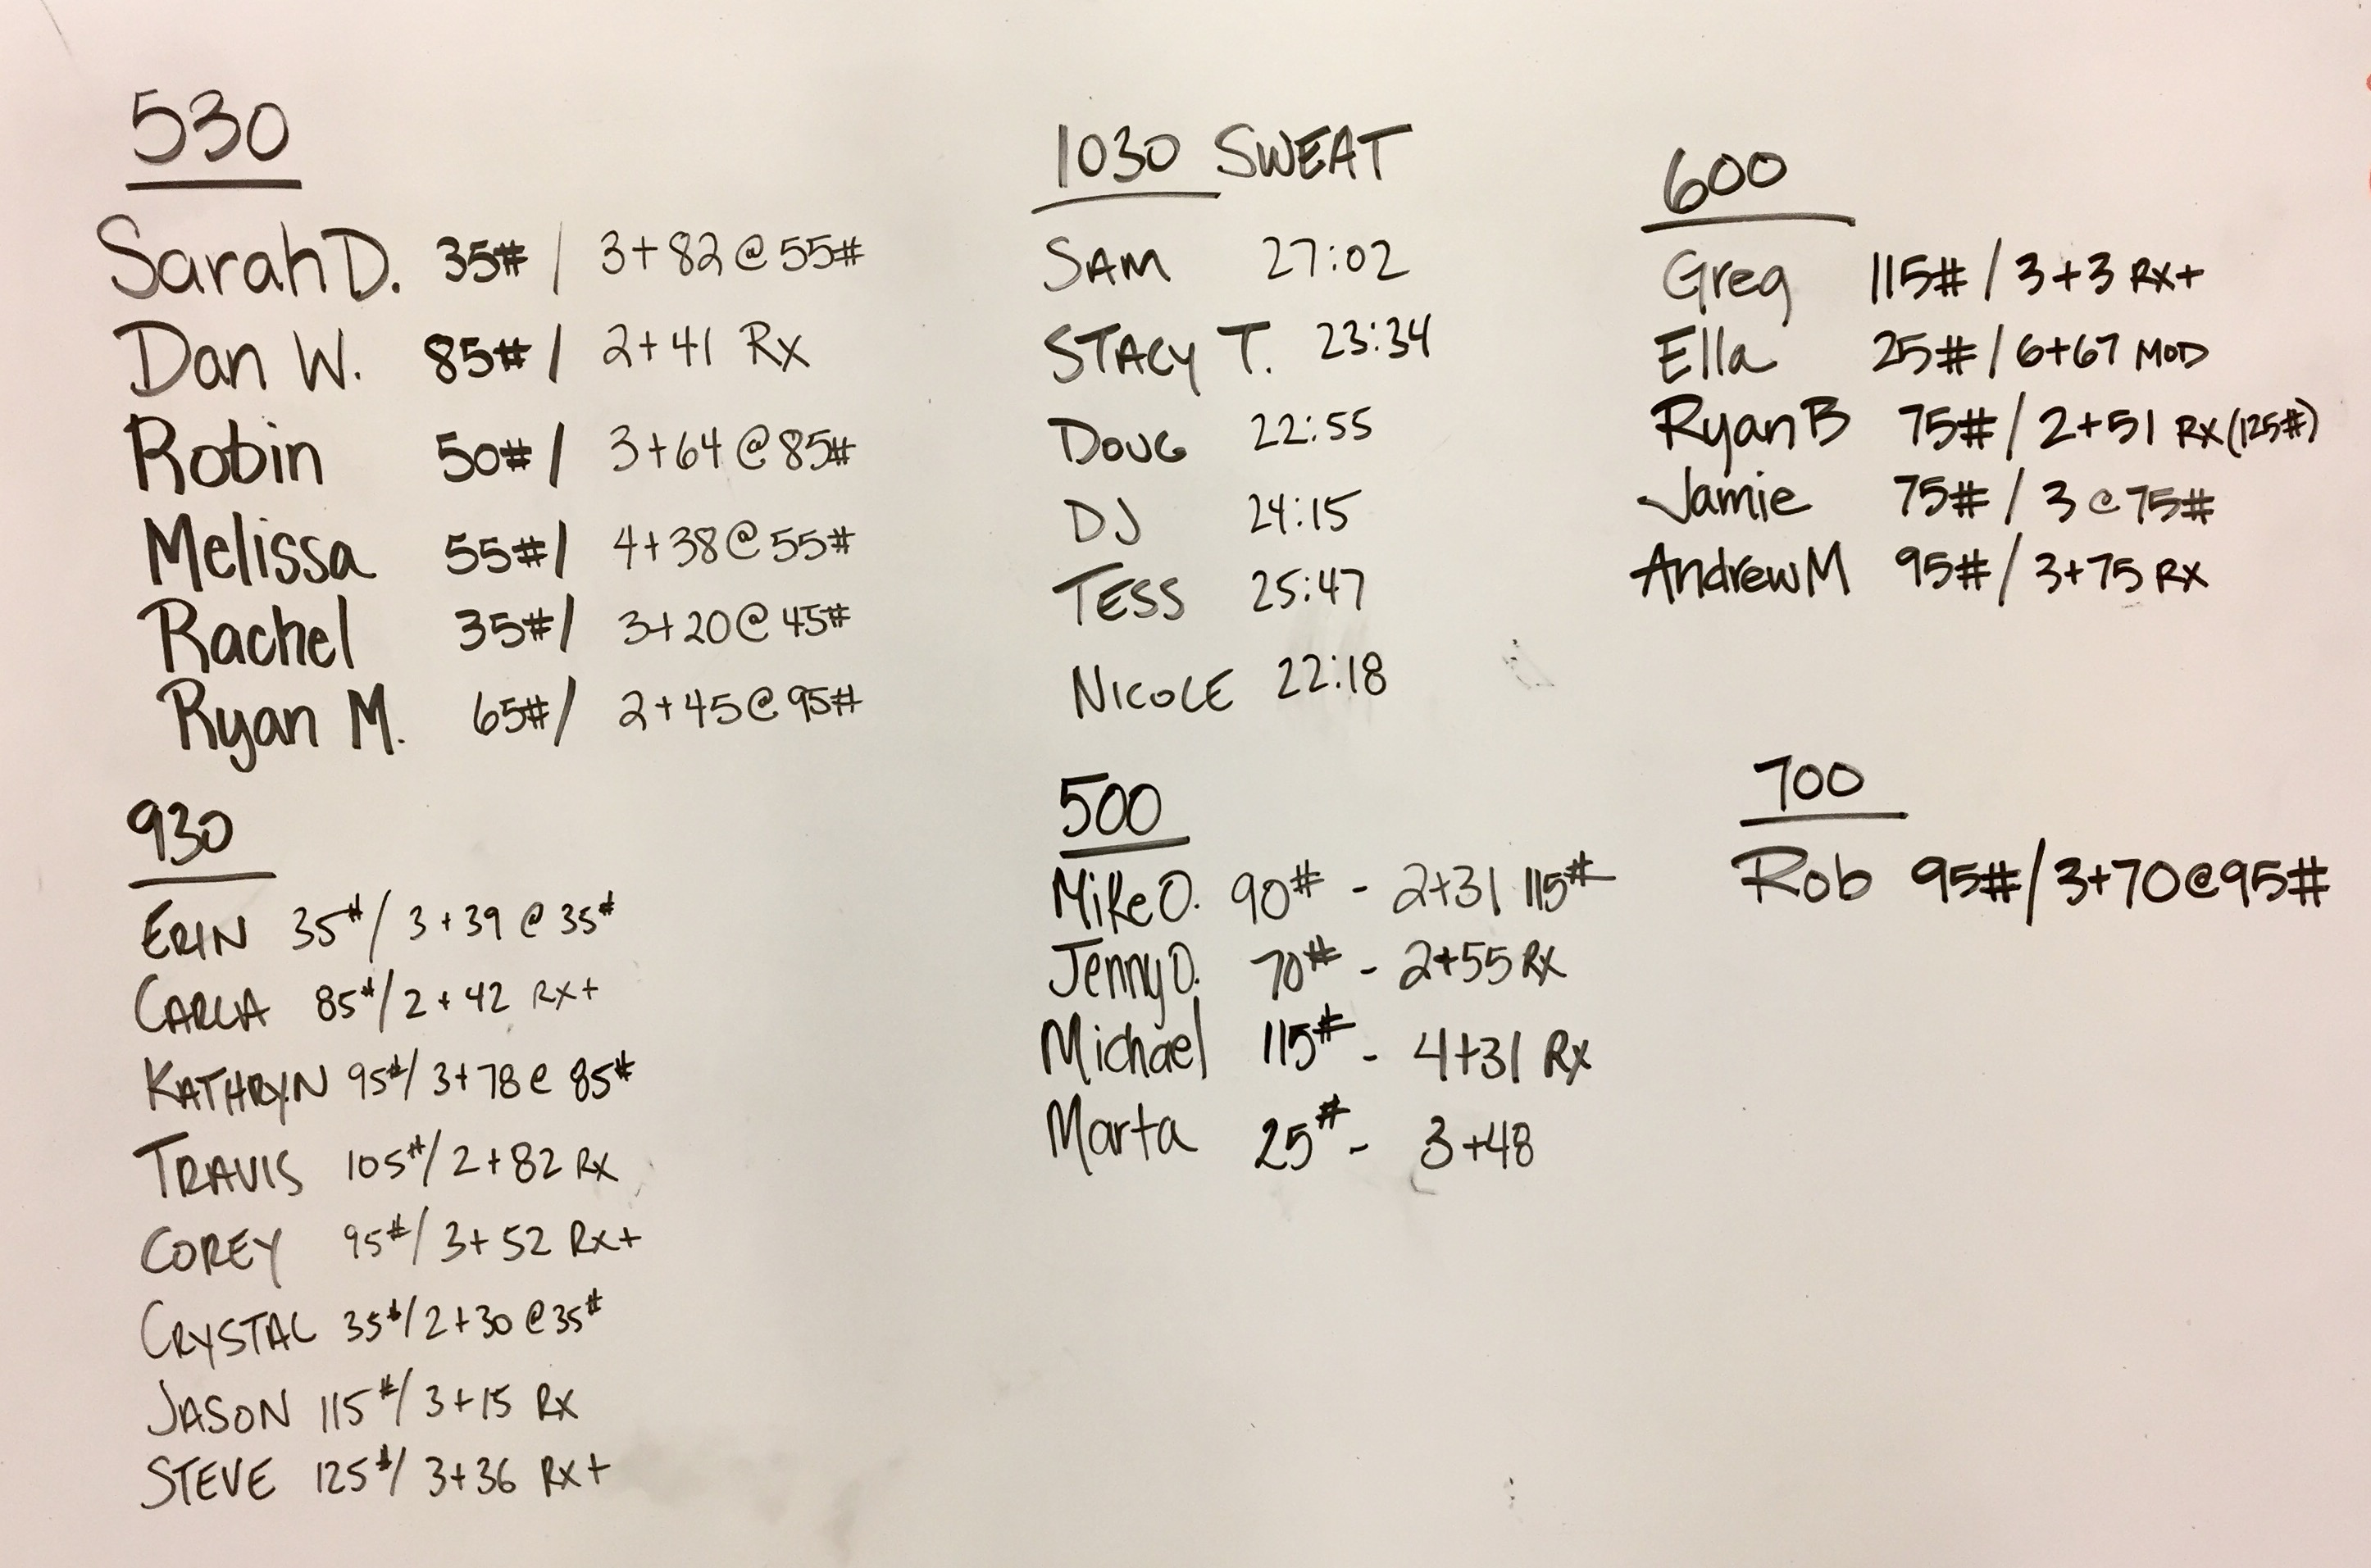 530
Sarah D. 35# / 3+82@55#
Dan W. 85# / 2+41 Rx
Robin 50# / 3+64@85#
Melissa 55# / 4+38@55#
Rachel 35# / 3+20@45#
Ryan M. 65# / 2+45@95#
930
ERIN 35# / 3+39 @ 35#
CARLA 85# / 2+42 RX+
KATHRYN 95# / 3+78@ 85#
TRAVIS 105# / 2+82 RX
COREY 95# / 3+52 RX+
CRYSTAL 35# / 2+30@35#
JASON 115# / 3+15 RX
STEVE 125# / 3+36 RX+
1030 SWEAT
SAM 27:02
STACY T. 23:34
DOUG 22:55
DJ 24:15
TESS 25:47
NICOLE 22:18
500
Mike O. 90# - 2+31 115#
Jenny O. 70# - 2+55 RX
Michael 115# - 4+31 Rx
Marta 25# - 3+48
600
Greg 115# / 3+3 RX+
Ella 25# / 6+67 MOD
Ryan B 75# / 2+51 RX (125#)
Jamie 75# / 3 @ 75#
Andrew M 95# / 3+75 RX
700
Rob 95# / 3+70@95#